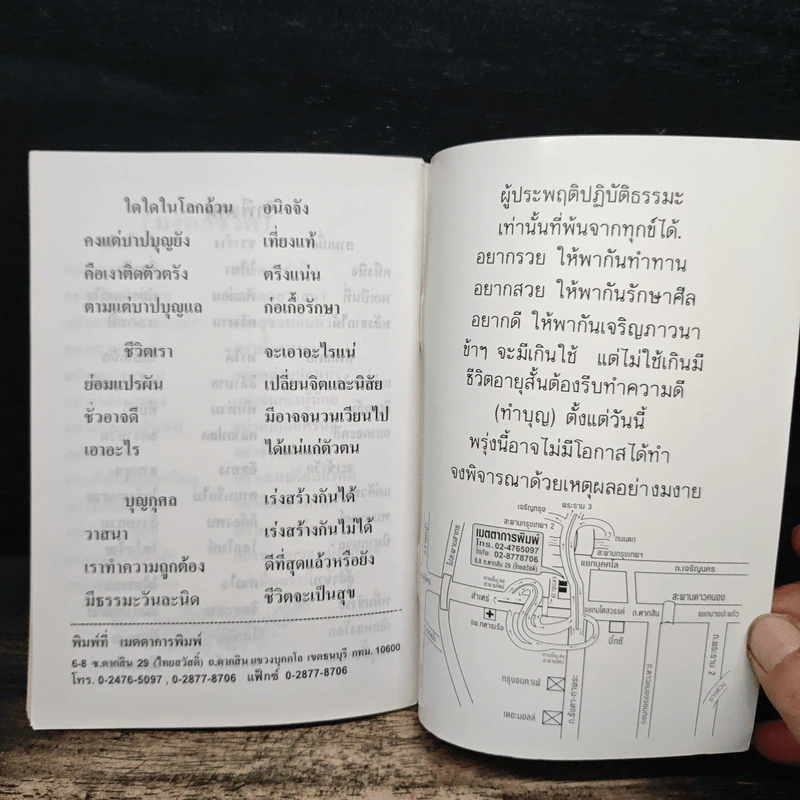 ใดใดในโลกล้วน อนิจจัง
คงแต่บาปบุญยัง เที่ยงแท้
คือเงาติดตัวตรัง ตรึงแน่น
ตามแต่บาปบุญแล ก่อเกื้อรักษา
ชีวิตเรา จะเอาอะไรแน่
ย่อมแปรผัน เปลี่ยนจิตและนิสัย
ชั่วอาจดี มีอาจจนวนเวียนไป
เอาอะไร ได้แน่แก่ตัวตน
บุญกุศล เร่งสร้างกันได้
วาสนา เร่งสร้างกันไม่ได้
เราทำความถูกต้อง ดีที่สุดแล้วหรือยัง
มีธรรมะวันละนิด ชีวิตจะเป็นสุข
พิมพ์ที่ เมตตาการพิมพ์
6-8 ซ.ตากสิน 29 (ไทยสวัสดิ์) ถ.ตากสิน แขวงบุคคโล เขตธนบุรี กทม. 10600
โทร. 0-2476-5097 , 0-2877-8706 แฟ็กซ์ 0-2877-8706
ผู้ประพฤติปฏิบัติธรรมะ
เท่านั้นที่พ้นจากทุกข์ได้.
อยากรวย ให้พากันทำทาน
อยากสวย ให้พากันรักษาศีล
อยากดี ให้พากันเจริญภาวนา
ข้าฯ จะมีเกินใช้ แต่ไม่ใช้เกินมี
ชีวิตอายุสั้นต้องรีบทำความดี
(ทำบุญ) ตั้งแต่วันนี้
พรุ่งนี้อาจไม่มีโอกาสได้ทำ
จงพิจารณาด้วยเหตุผลอย่างมงาย
เจริญกรุง
พระราม 3
สะพานกรุงเทพฯ 2
ถนนตก
สะพานกรุงเทพฯ
เมตตาการพิมพ์
โทร. 02-4765097
โทรศัพท์ 02-8778706
6,8 ถ.ตากสิน 29 (ไทยสวัสดิ์)
แยกบุคคโล
ถ.เจริญนคร
สำเหร่
รพ.ทหารเรือ
แยกมไหสวรรย์
ถ.ตากสิน
สะพานดาวคนอง
บิ๊กซี
ถ.พระราม 2
กรุงธนคาเฟ่
เดอะมอลล์
ถ.รัชดา-ท่าพระ